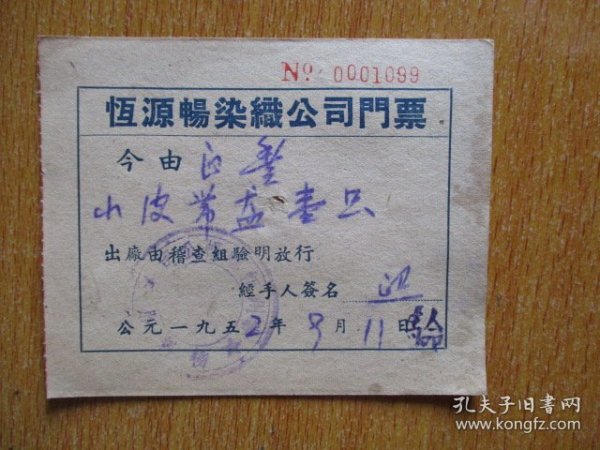 No. 0001099
恆源暢染織公司門票
今由
小皮帶盘壹只
出廠由稽查組驗明放行
經手人簽名
公元一九五2年9月11日
孔夫子旧书网
www.kongfz.com